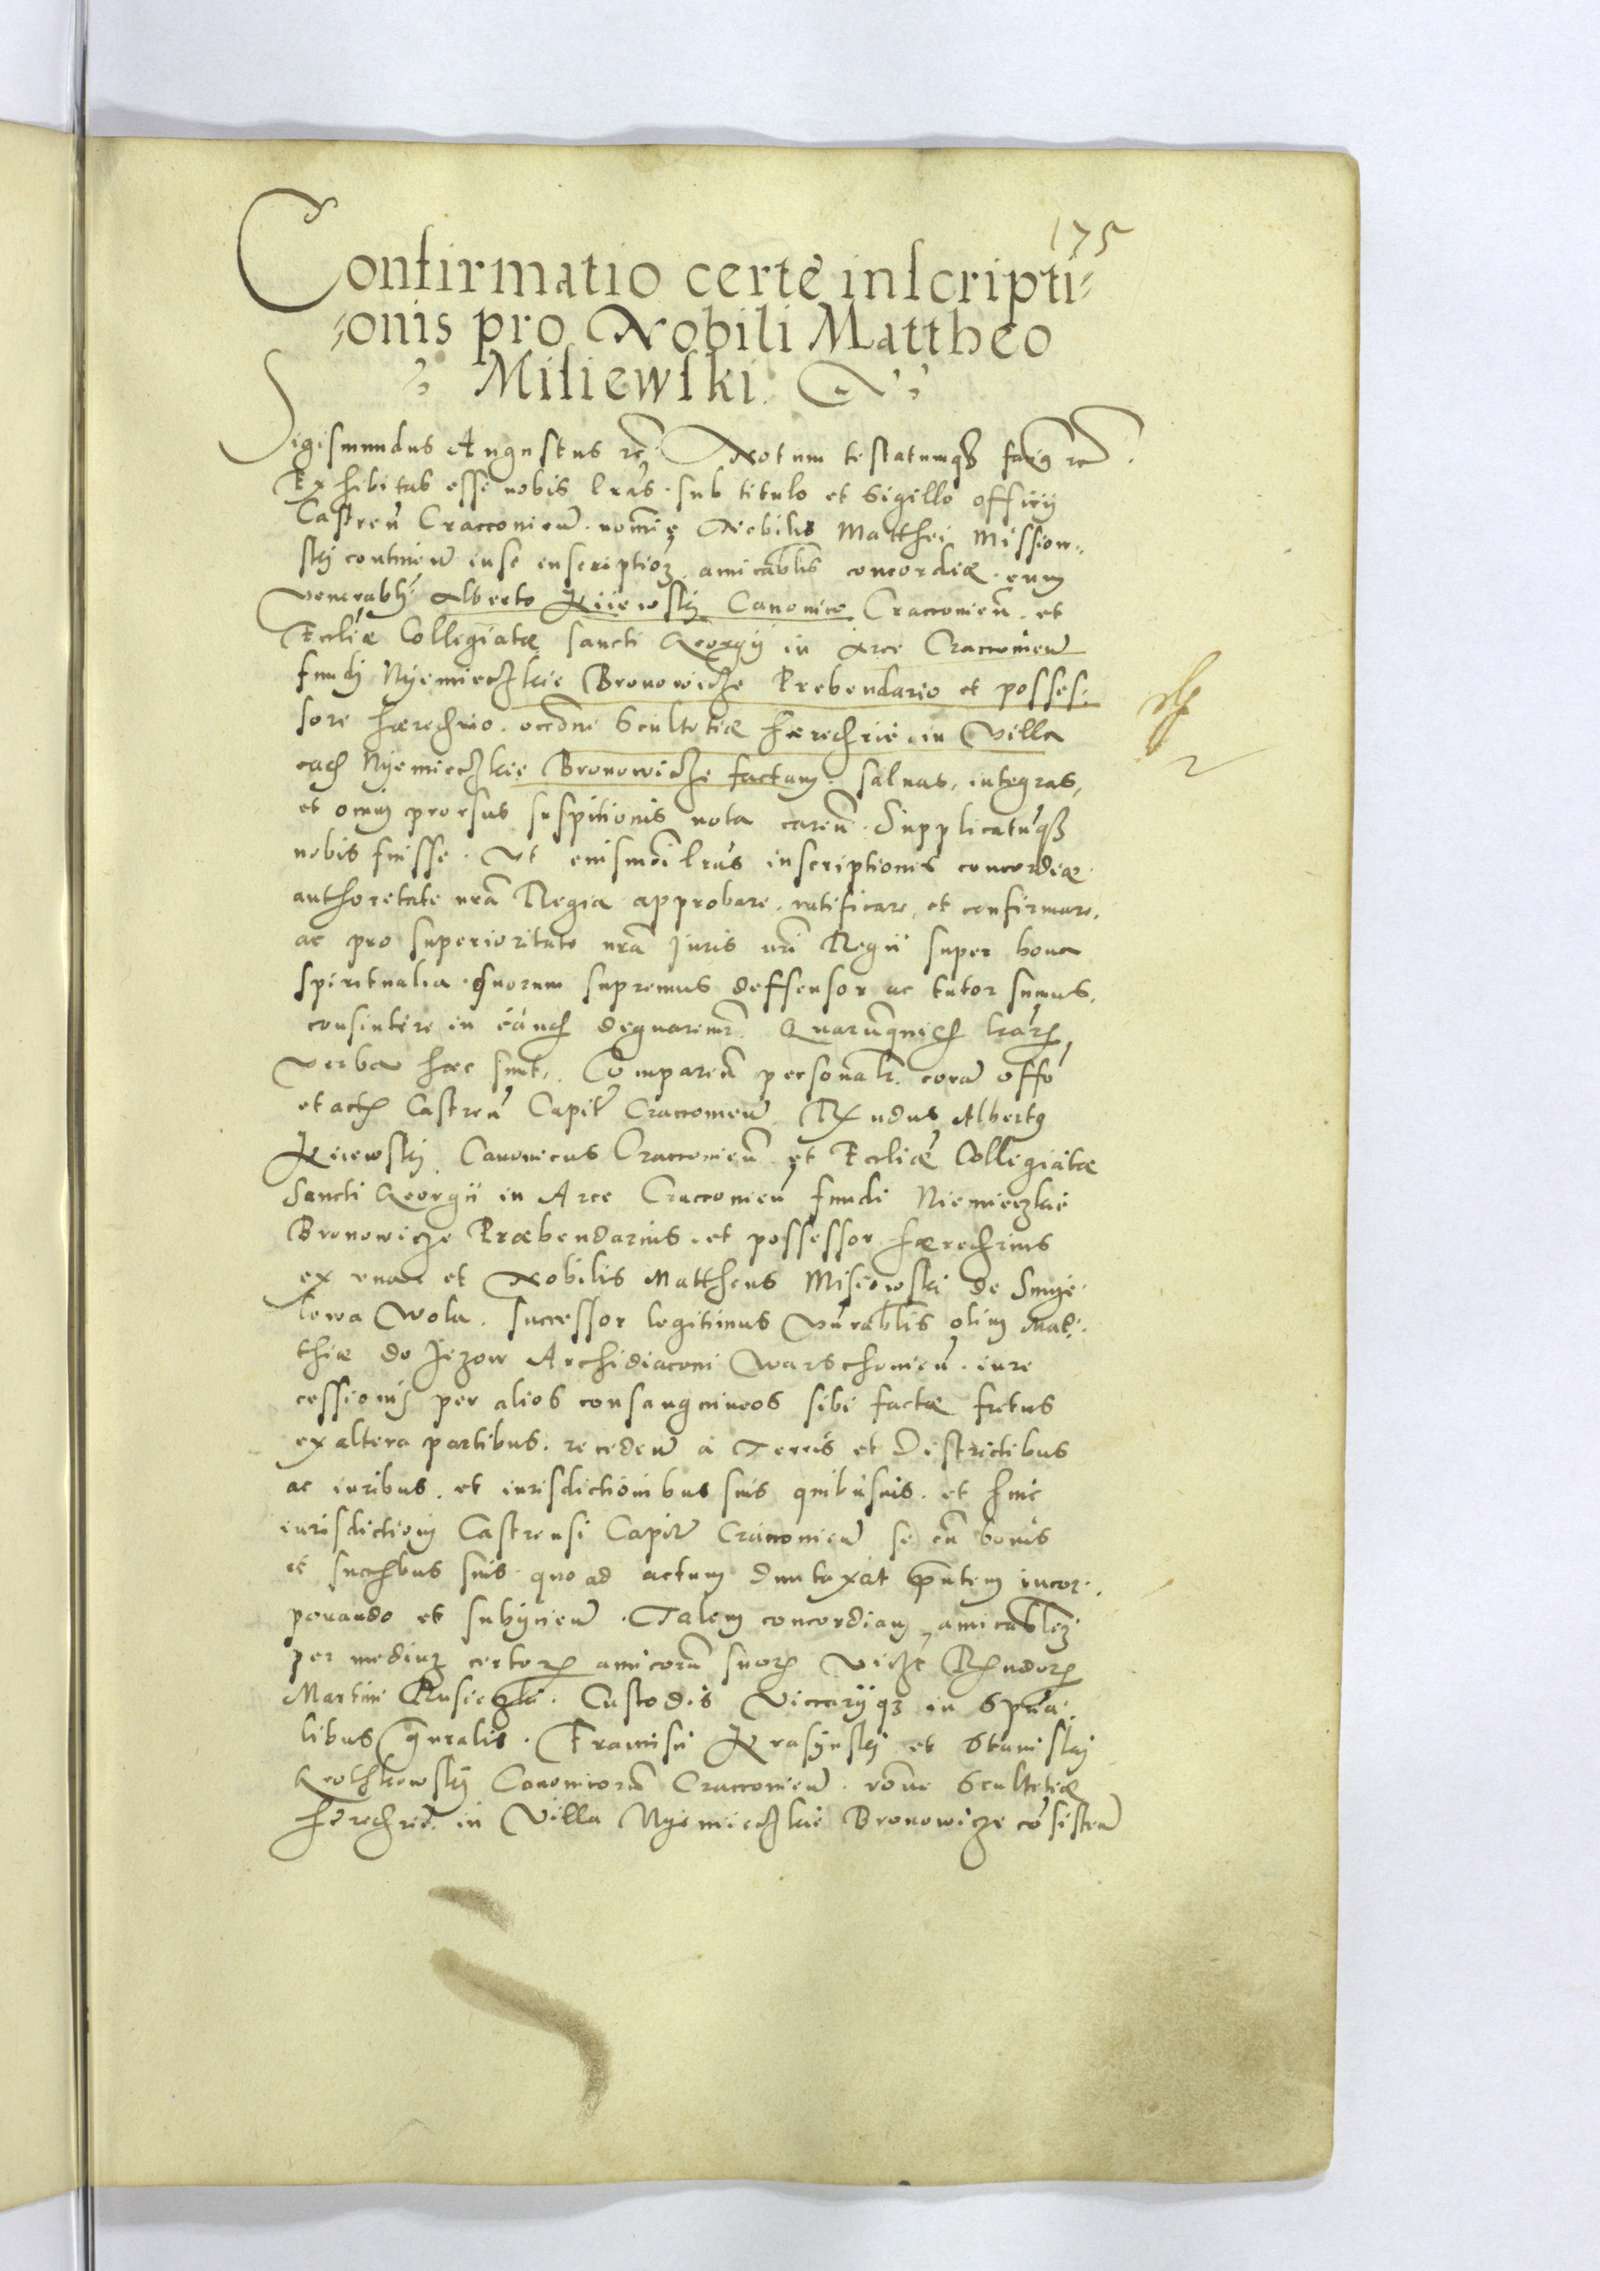 175
Confirmatio certe inscripti-
-onis pro Nobili Mattheo
Misiewski.
Sigismundus Augustus rc. Notum testatumqȝ facimꝰ rc.
Exhibitas esse nobis lras sub titulo et sigillo officij
Castren Cracovien. nomine Nobilis Matthei Missiow-
skj continen in se inscriptioẽ amicablis concordiæ cum
venerabli Alberto Kijewskj Canonico Cracovien. et
Eccliæ Collegiatæ sancti Georgij in Arce Cracovien
fundj Nyemieczkie Bronowicze Prebendario et posses-
sore hæred̃rio. occõne Scultetiæ hæred̃riæ in Villa
ead̃ Nyemieczkie Bronowicze factam. saluas, integras,
et omnj prorsus suspitionis nota caren. Supplicatuqȝ
nobis fuisse. Vt eiusmõi lras inscriptionis concordiæ
authoritate nrã Regia approbare, ratificare, et confirmare,
ac pro superioritate nrã Juris nri Regii super bona
spiritualia quorum supremus deffensor ac tutor sumus,
consintire in eand̃ dignaremr. Quarũquid̃ lrarũ
verba hæc sunt. Comparen personalr. corã offo
et actis Castren Capitl Cracovien Rndus Albertꝰ
Kijewskj Canonicus Cracovien et Eccliæ Collegiatæ
Sancti Georgii in Arce Cracovien fundi Niemieczkie
Bronowicze Præbendarius et possessor hæred̃rius
ex vna et Nobilis Mattheus Misiowski de
Wola. successor legitimus Vnrablis olim Mat-
thiæ de Jezow Archidiaconi Warschovien. iure
cessionis per alios consanguineos sibi factæ fretus
ex altera partibus. receden à Terris et Districtibus
ac iuribus et iurisdictionibus suis quibusuis. et huic
iurisdictionj Castrensi Capitl Cracovien se cũ bonis
et succribus suis quo ad actum duntaxat pñtem incor-
porando et subijcien. Talem concordiam amicablẽ
per mediũ certorũ amicorũ suorũ vicȝt Rndorũ
Martini Custodis Viccarijqȝ in Spũa-
libus gñralis. Francisci Krasynskj et Stanislaj
Canonicorũ Cracovien. rõne Scultetiæ
hæred̃riæ in Villa Nyemieczkie Bronowicze cõsisten